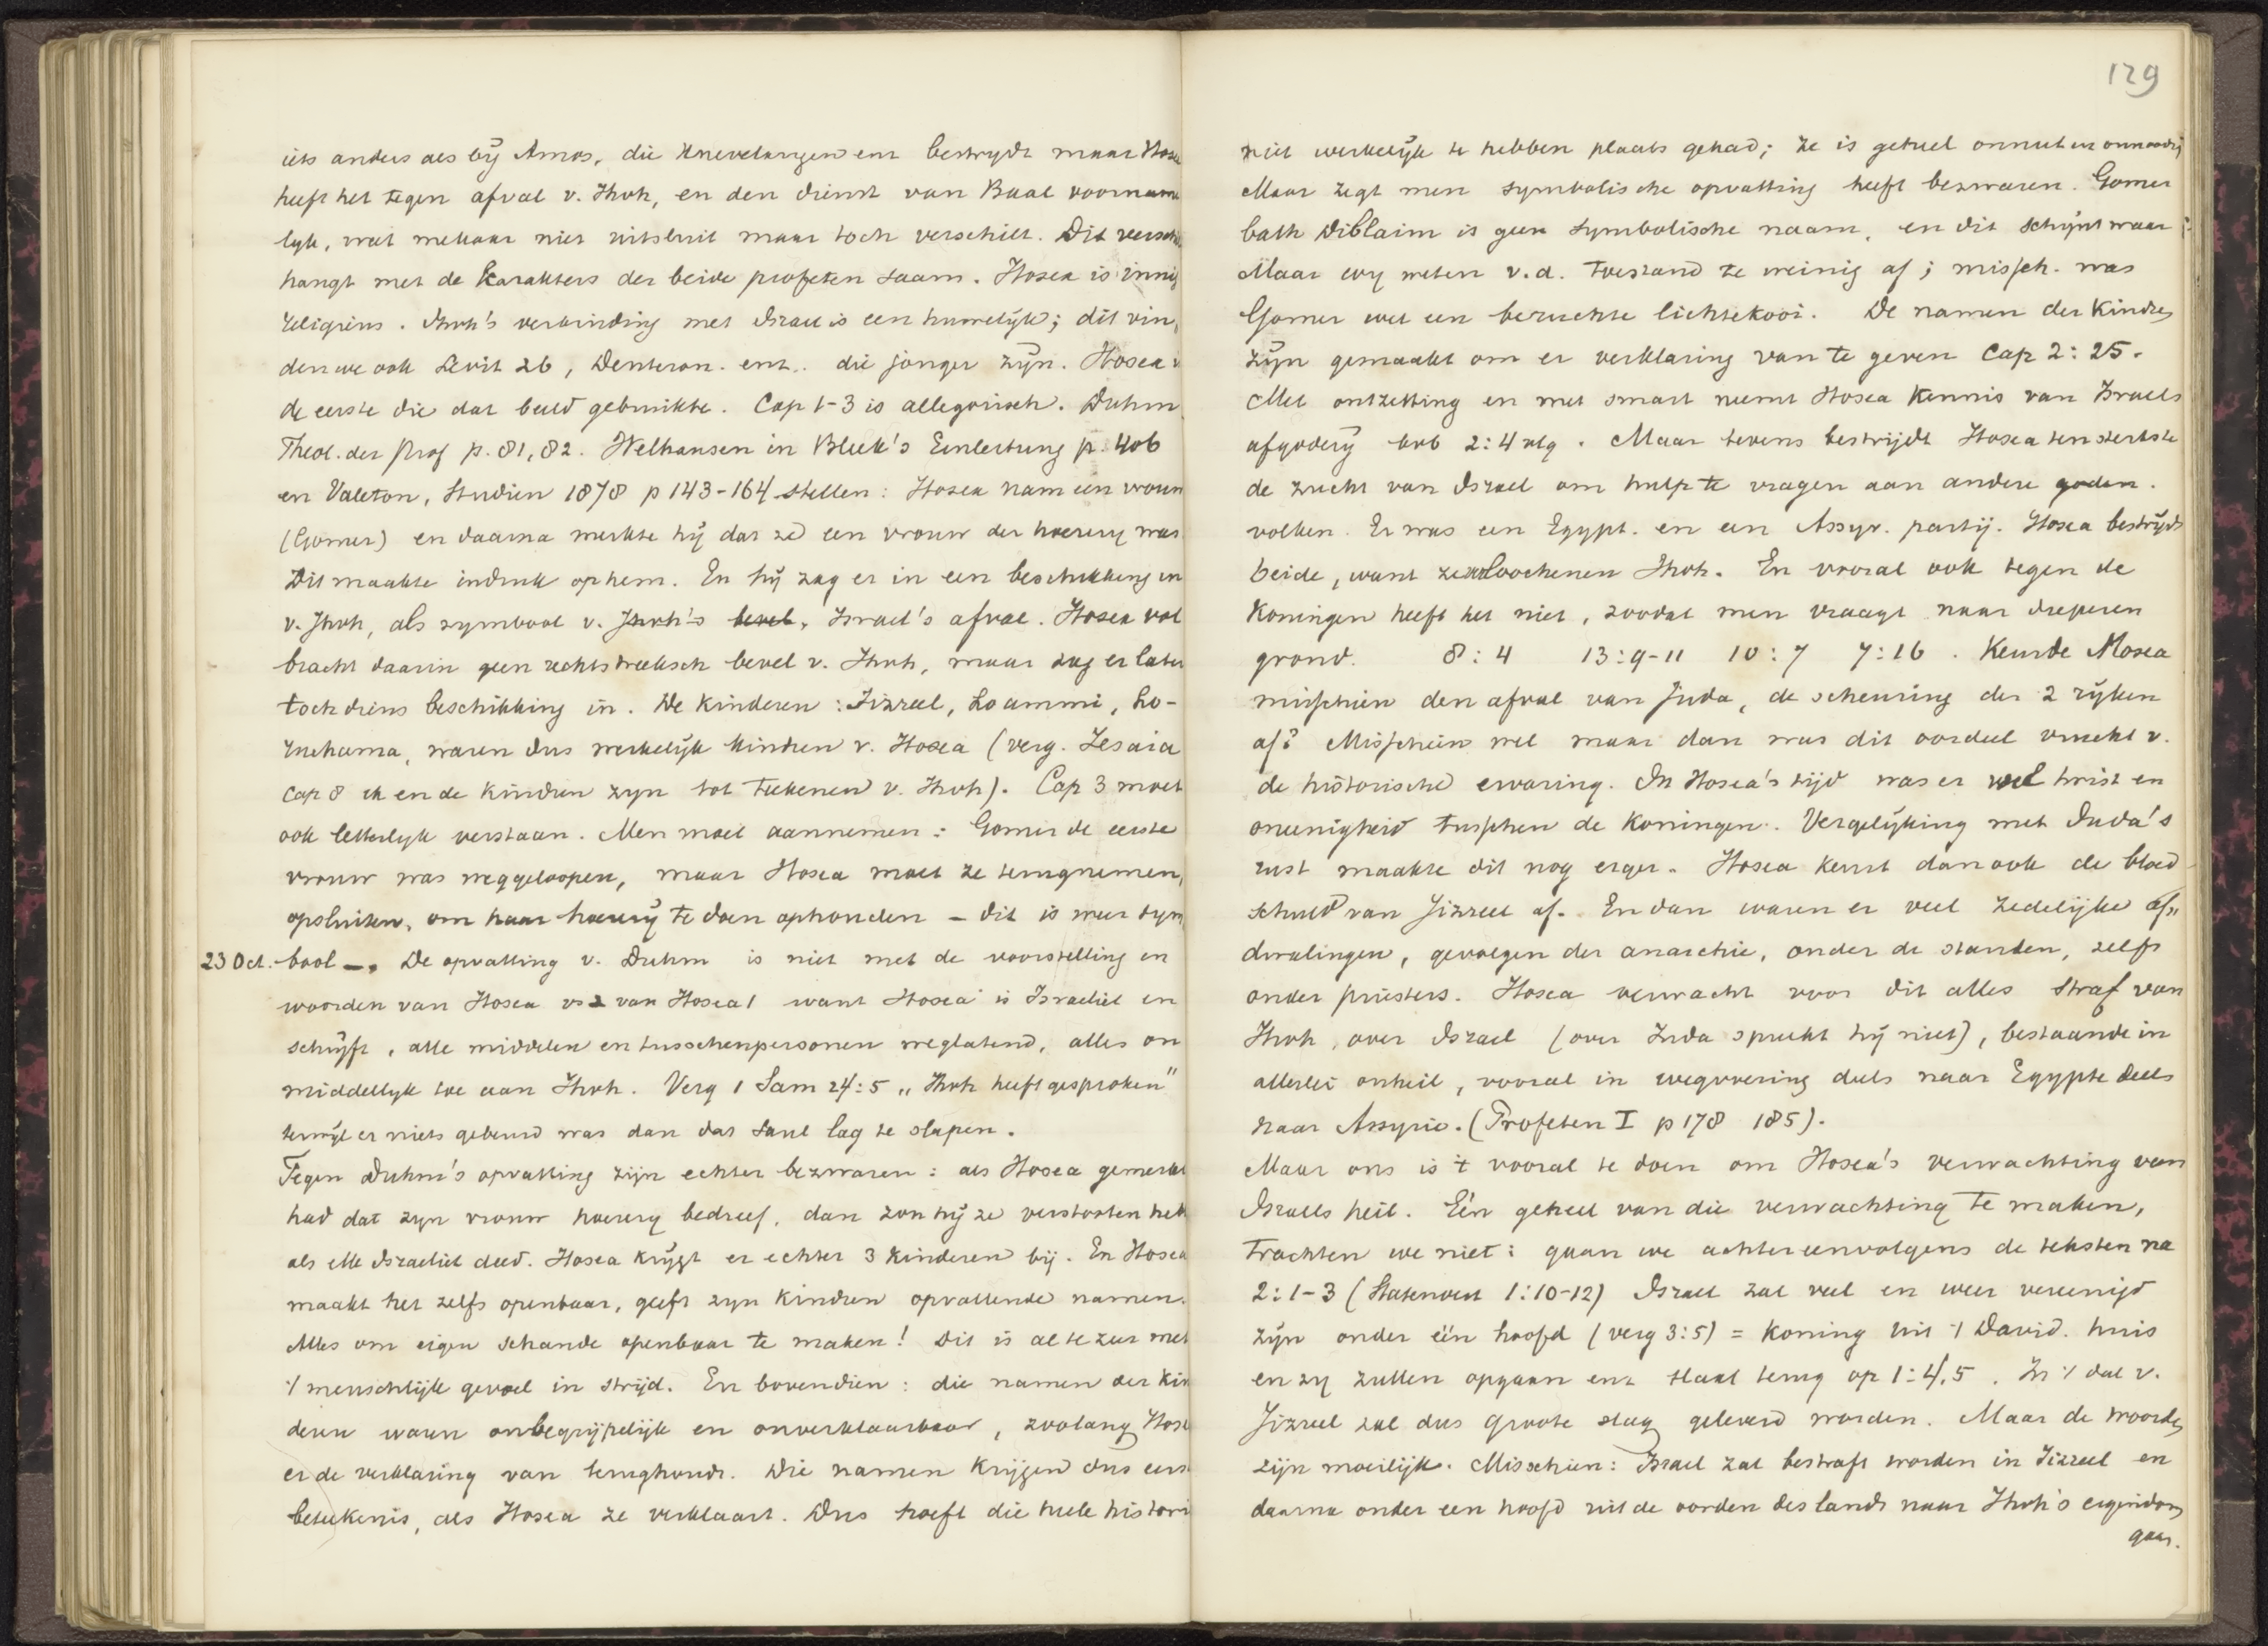 iets anders als bij Amos, die knevelarijen enz bestrijdt maar Hosea
heeft het tegen afval v. Jhvh, en den dienst van Baal voorname
lijk, wat mekaar niet uitsluit maar toch verschilt. Dit versch
hangt met de karakters der beide profeten saam. Hosea is innig
religieus. Jhvh's verbinding met Israel is een huwelijk; dit vin
den we ook Levit 26, Deuteron. enz.. die jonger zijn. Hosea
de eerste die dat beeld gebruikte. Cap 1-3 is allegorisch. Duhm
Theol. der Prof p. 81, 82. Welhausen in Bleek's Einleitung p. 406
en Valeton, Studien 1878 p 143-164 stellen: Hosea nam een vrouw
(Gomer) en daarna merkte hij dat ze een vrouw der hoererij was
Dit maakte indruk op hem. En hij zag er in een beschikking in
v. Jhvh, als symbool v. Jhvh's bevel, Israel's afval. Hosea vol
bracht daarin geen rechtstreeksch bevel v. Jhvh, maar zag er later
toch diens beschikking in. De kinderen: Jizreel, Lo ammi, Lo-
ruchama, waren dus werkelijk kindren v. Hosea (verg. Jesaia
cap 8 ik en de kindren zijn tot teekenen v. Jhvh). Cap 3 moet
ook letterlijk verstaan. Men moet aannemen: Gomer de eerste
vrouw was weggeloopen, maar Hosea moet ze terugnemen,
opsluiten, om haar hoererij te doen ophouden - dit is weer sym
23 Oct. bool -. De opvatting v. Duhm is niet met de voorstelling en
woorden van Hosea vs 2 van Hosea 1 want Hosea is Israeliet en
schrijft, alle middelen en tusschenpersonen weglatend, alles on
middellijk toe aan Jhvh. Verg 1 Sam 24:5 „Jhvh heeft gesproken"
terwijl er niets gebeurd was dan dat Saul lag te slapen.
Tegen Duhm's opvatting zijn echter bezwaren: als Hosea gemerkt
had dat zijn vrouw hoererij bedreef, dan zou hij ze verstooten heb
als elk Israeliet deed. Hosea krijgt er echter 3 kinderen bij. En Hosea
maakt het zelfs openbaar, geeft zijn kindren opvallende namen.
Alles om eigen schande openbaar te maken! Dit is al te zeer met
't menschlijk gevoel in strijd. En bovendien: die namen der kin
deren waren onbegrijpelijk en onverklaarbaar, zoolang Hose
er de verklaring van terughoudt. Die namen krijgen dus eerst
beteekenis, als Hosea ze verklaart. Dus hoeft die heele histori
129
niet werkelijk te hebben plaats gehad; ze is geheel onnut en onnoodig
Maar zegt men symbolische opvatting heeft bezwaren. Gomer
bath Diblaim is geen symbolische naam, en dit schijnt waar
Maar wij weten v.d. toestand te weinig af; missch. was
Gomer wel een beruchte lichtekooi. De namen der kindren
zijn gemaakt om er verklaring van te geven Cap 2:25.
Met ontzetting en met smart neemt Hosea kennis van Israels
afgoderij bvb 2:4 vlg. Maar tevens bestrijdt Hosea ten sterkste
de zucht van Israel om hulp te vragen aan andere goden.
volken. Er was een Egypt. en een Assyr. partij. Hosea bestrijdt
beide, want ze verloochenen Jhvh. En vooral ook tegen de
Koningen heeft het niet, zoodat men vraagt naar dieperen
grond. 8:4 13:9-11 10:7 7:16. Keurde Hosea
misschien den afval van Juda, de scheuring der 2 rijken
af? Misschien wel maar dan was dit oordeel vrucht v.
de historische ervaring. In Hosea's tijd was er veel twist en
oneenigheid tusschen de Koningen. Vergelijking met Juda's
rust maakte dit nog erger. Hosea keurt dan ook de bloed
schuld van Jizreel af. En dan waren er veel zedelijke af„
dwalingen, gevolgen der anarchie, onder de standen, zelfs
onder priesters. Hosea verwacht voor dit alles straf van
Jhvh, over Israel (over Juda spreekt hij niet), bestaande in
allerlei onheil, vooral in wegvoering deels naar Egypte deels
naar Assyrie. (Profeten I p 178 185).
Maar ons is 't vooral te doen om Hosea's verwachting van
Israels heil. Eén geheel van die verwachting te maken,
trachten we niet: gaan we achtereenvolgens de teksten na
2:1-3 (Statenvert 1:10-12) Israel zal veel en weer vereenigd
zijn onder één hoofd (verg 3:5) = Koning uit 't David. huis
en zij zullen opgaan enz slaat terug op 1:4,5. In 't dal v.
Jizreel zal dus groote slag geleverd worden. Maar de woorden
zijn moeilijk. Misschien: Israel zal bestraft worden in Jizreel en
daarna onder een hoofd uit de oorden des lands naar Jhvh's eigendom
gaan.